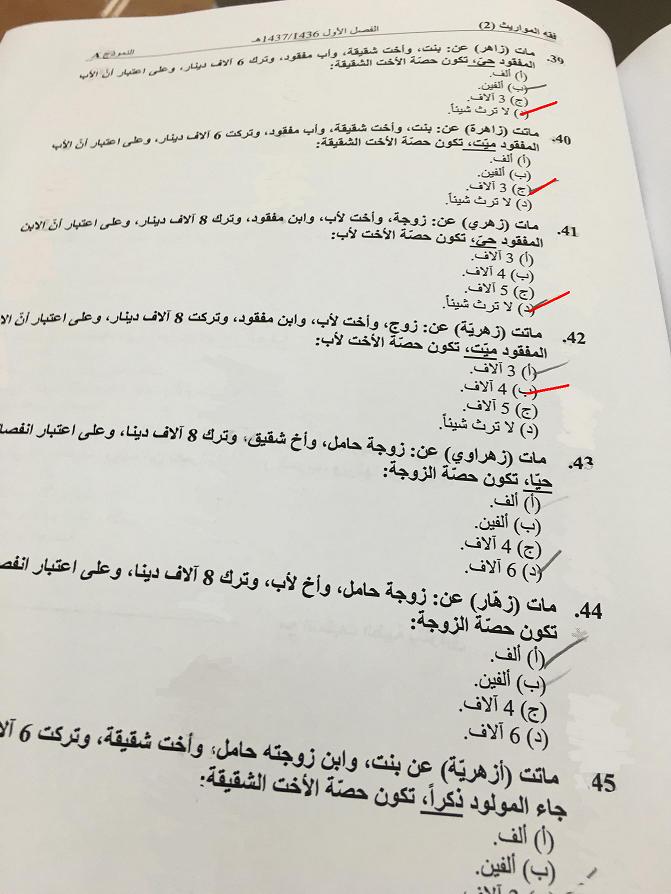 فقه المواريث (2) الفصل الأول 1437/1436هـ النموذج A
39. مات (زاهر) عن: بنت، وأخت شقيقة، وأب مفقود، وترك 6 آلاف دينار، وعلى اعتبار أنّ الأب
المفقود حيّ، تكون حصّة الأخت الشقيقة:
(أ) ألف.
(ب) ألفين.
(ج) 3 آلاف.
(د) لا ترث شيئاً.
40. ماتت (زاهرة) عن: بنت، وأخت شقيقة، وأب مفقود، وتركت 6 آلاف دينار، وعلى اعتبار أنّ الأب
المفقود ميّت، تكون حصّة الأخت الشقيقة:
(أ) ألف.
(ب) ألفين.
(ج) 3 آلاف.
(د) لا ترث شيئاً.
41. مات (زهري) عن: زوجة، وأخت لأب، وابن مفقود، وترك 8 آلاف دينار، وعلى اعتبار أنّ الابن
المفقود حيّ، تكون حصّة الأخت لأب:
(أ) 3 آلاف.
(ب) 4 آلاف.
(ج) 5 آلاف.
(د) لا ترث شيئاً.
42. ماتت (زهريّة) عن: زوج، وأخت لأب، وابن مفقود، وتركت 8 آلاف دينار، وعلى اعتبار أنّ
المفقود ميّت، تكون حصّة الأخت لأب:
(أ) 3 آلاف.
(ب) 4 آلاف.
(ج) 5 آلاف.
(د) لا ترث شيئاً.
43. مات (زهراوي) عن: زوجة حامل، وأخ شقيق، وترك 8 آلاف دينا، وعلى اعتبار
حيّا، تكون حصّة الزوجة:
(أ) ألف.
(ب) ألفين.
(ج) 4 آلاف.
(د) 6 آلاف.
44. مات (زهّار) عن: زوجة حامل، وأخ لأب، وترك 8 آلاف دينا، وعلى اعتبار
تكون حصّة الزوجة:
(أ) ألف.
(ب) ألفين.
(ج) 4 آلاف.
(د) 6 آلاف.
45 ماتت (أزهريّة) عن بنت، وابن زوجته حامل، وأخت شقيقة، وتركت 6
جاء المولود ذكراً، تكون حصّة الأخت الشقيقة:
(أ) ألف.
(ب) ألفين.